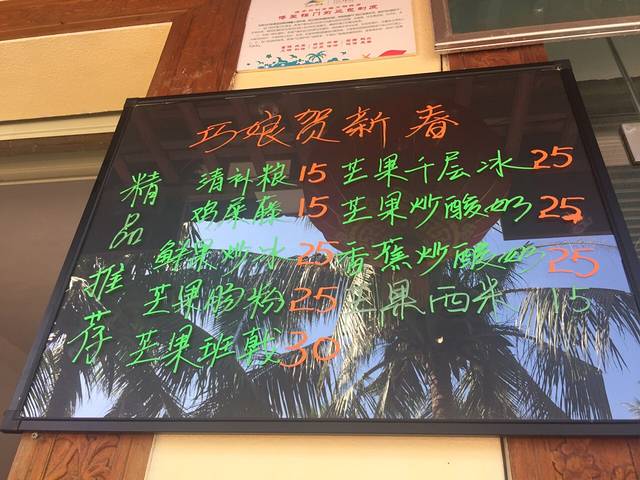 巧娘贺新春
精品推荐
清补粮 15 芒果千层冰 25
鸡屎藤 15 芒果炒酸奶 25
鲜果炒冰 25 香蕉炒酸奶 25
芒果肠粉 25 芒果西米 15
芒果班戟 30